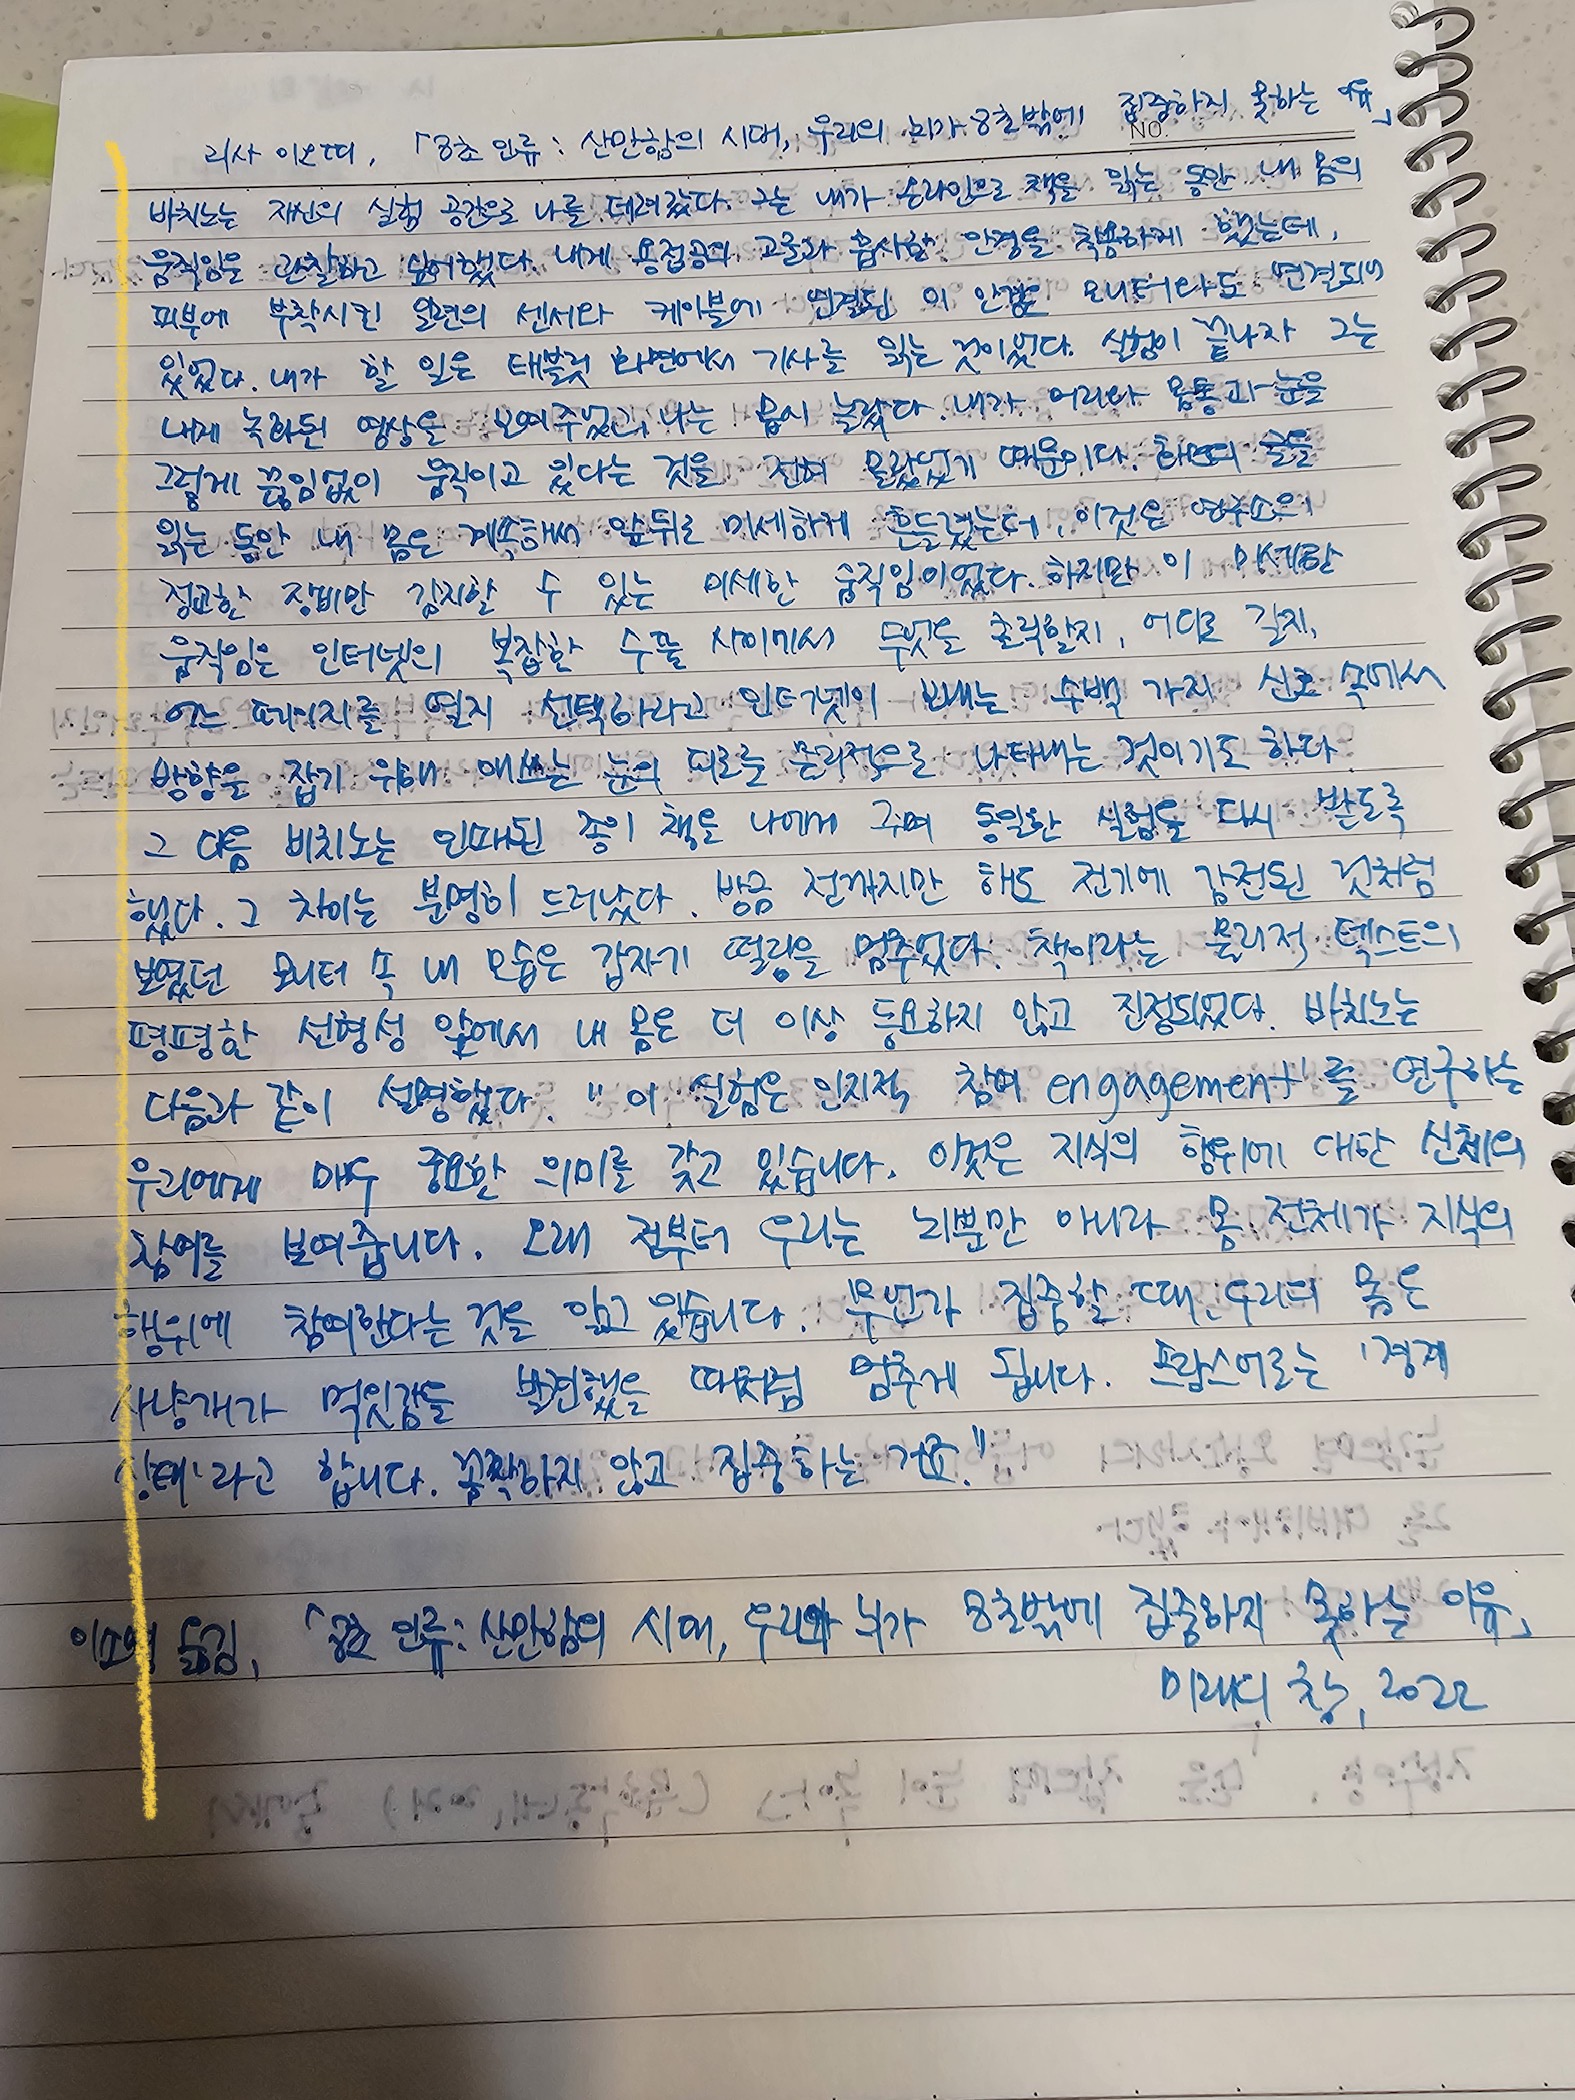 리사 이오띠, 「8초 인류: 산만함의 시대, 우리의 뇌가 8초밖에 집중하지 못하는 이유」
NO.
바치노는 자신의 실험 공간으로 나를 데려갔다. 그는 내가 온라인으로 책을 읽는 동안 내 몸의
움직임을 관찰하고 싶어했다. 내게 용접공의 고글과 흡사한 안경을 착용하게 했는데,
피부에 부착시킨 일련의 센서와 케이블에 연결된 이 안경은 모니터와도 연결되어
있었다. 내가 할 일은 태블릿 화면에서 기사를 읽는 것이었다. 실험이 끝나자 그는
내게 녹화된 영상을 보여주었고, 나는 몹시 놀랐다. 내가 머리와 몸통과 눈을
그렇게 끊임없이 움직이고 있다는 것을 전혀 몰랐었기 때문이다. 화면의 글을
읽는 동안 내 몸은 계속해서 앞뒤로 미세하게 흔들렸는데, 이것은 연구소의
정교한 장비만 감지할 수 있는 미세한 움직임이었다. 하지만 이 미세한
움직임은 인터넷의 복잡한 수풀 사이에서 무엇을 클릭할지, 어디로 갈지,
어느 페이지를 열지 선택하라고 인터넷이 보내는 수백 가지 신호 속에서
방향을 잡기 위해 애쓰는 눈의 피로를 물리적으로 나타내는 것이기도 하다.
그 다음 바치노는 인쇄된 종이 책을 나에게 주며 동일한 실험을 다시 받도록
했다. 그 차이는 분명히 드러났다. 방금 전까지만 해도 전기에 감전된 것처럼
보였던 모니터 속 내 모습은 갑자기 떨림을 멈추었다. 책이라는 물리적 텍스트의
평평한 선형성 앞에서 내 몸은 더 이상 동요하지 않고 진정되었다. 바치노는
다음과 같이 설명했다. "이 실험은 인지적 참여 engagement'를 연구하는
우리에게 매우 중요한 의미를 갖고 있습니다. 이것은 지식의 행위에 대한 신체의
참여를 보여줍니다. 오래 전부터 우리는 뇌뿐만 아니라 몸 전체가 지식의
행위에 참여한다는 것을 알고 있습니다. 무언가 집중할 때, 우리의 몸은
사냥개가 먹잇감을 발견했을 때처럼 멈추게 됩니다. 프랑스어로는 '경계
상태'라고 합니다. 꼼짝하지 않고 집중하는 거죠."
이소영 옮김, 「8초 인류: 산만함의 시대, 우리의 뇌가 8초밖에 집중하지 못하는 이유」
미래의 창, 2022